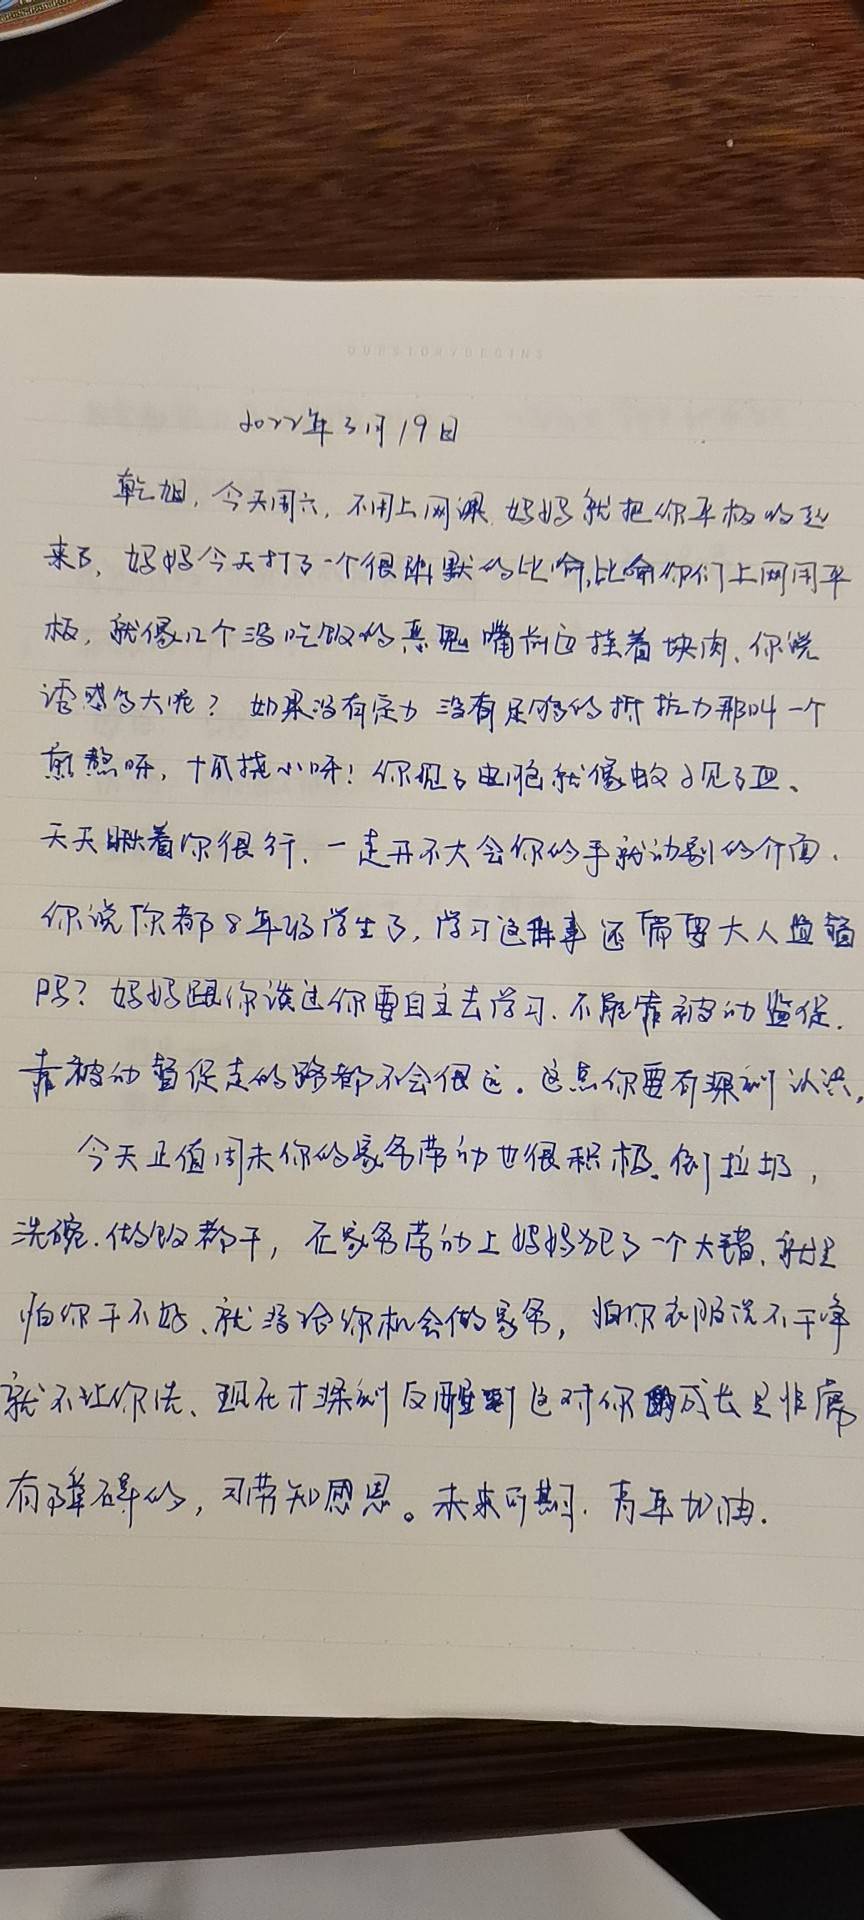 OURSTORYBEGINS
2022年3月19日
乾旭，今天周六，不用上网课，妈妈就把你平板收起
来了，妈妈今天打了一个很幽默的比喻，比喻你们上网用平
板，就像几个没吃饭的恶鬼嘴前边挂着块肉、你说
诱惑多大呢？如果没有定力 没有足够的抵抗力那叫一个
煎熬呀，抓挠心呀！你见了电脑就像蚊子见了血、
天天瞅着你很行、一走开不大会你的手就动别的介面．
你说你都8年级学生了，学习这件事还需要大人监督
吗？妈妈跟你谈过你要自主去学习．不能靠被动监促．
靠被动督促走的路都不会很远。这点你要有深刻认识，
今天正值周末你的家务劳动也很积极。倒垃圾，
洗碗．做饭都干，在家务劳动上妈妈犯了一个大错、就是
怕你干不好、就没给你机会做家务，怕你衣服洗不干净
就不让你洗、现在才深刻反醒到这对你的成长是非常
有障碍的，习劳知感恩。未来可期．青年加油．